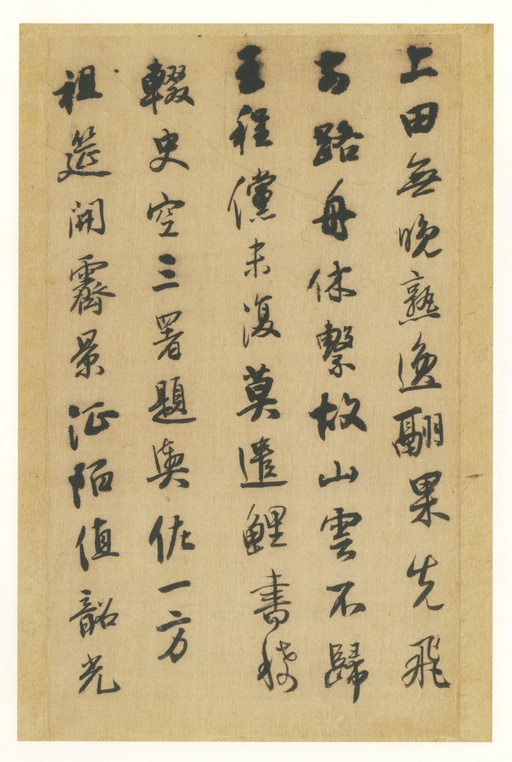 上田無晚熟逸翮果先飛
路舟休繫故山雲不歸
王程儻未復莫遣鯉書稀
輟史空三署題輿佐一方
祖筵開霽景征陌值韶光